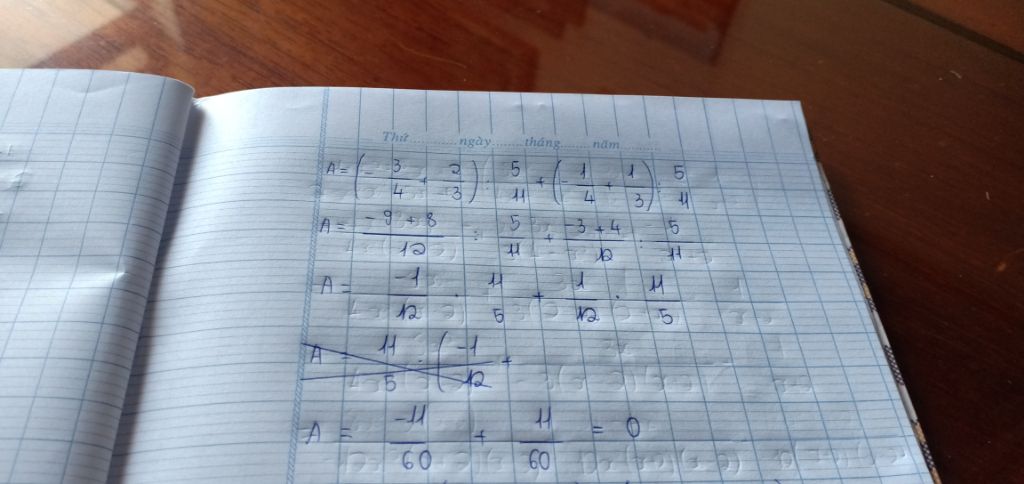 Thứ............ngày........tháng........năm........
A = (-3/4 + 2/3) : 5/11 + (-1/4 + 1/3) : 5/11
A = -9+8/12 : 5/11 + -3+4/12 : 5/11
A = -1/12 . 11/5 + 1/12 . 11/5
A = 11/5 . (-1/12 +
A = -11/60 + 11/60 = 0